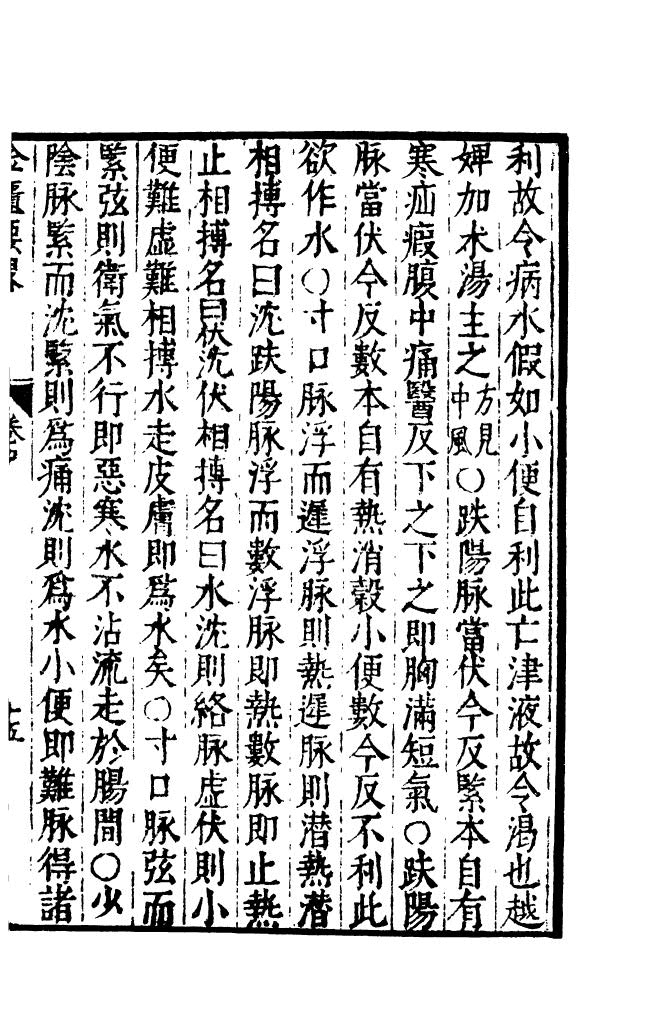 利故令病水假如小便自利此亡津液故令渴也越
婢加朮湯主之方見中風○趺陽脉當伏今反緊本自有
寒疝瘕腹中痛醫反下之下之即胸滿短氣○趺陽
脉當伏今反數本自有熱消穀小便數今反不利此
欲作水○寸口脉浮而遲浮脉則熱遲脉則潛熱潛
相搏名曰沈趺陽脉浮而數浮脉即熱數脉即止熱
止相搏名曰伏沈伏相搏名曰水沈則絡脉虛伏則小
便難虛難相搏水走皮膚即爲水矣○寸口脉弦而
緊弦則衛氣不行即惡寒水不沾流走於腸間○少
陰脉緊而沈緊則爲痛沈則爲水小便即難脉得諸
金匱要畧 卷中 十五